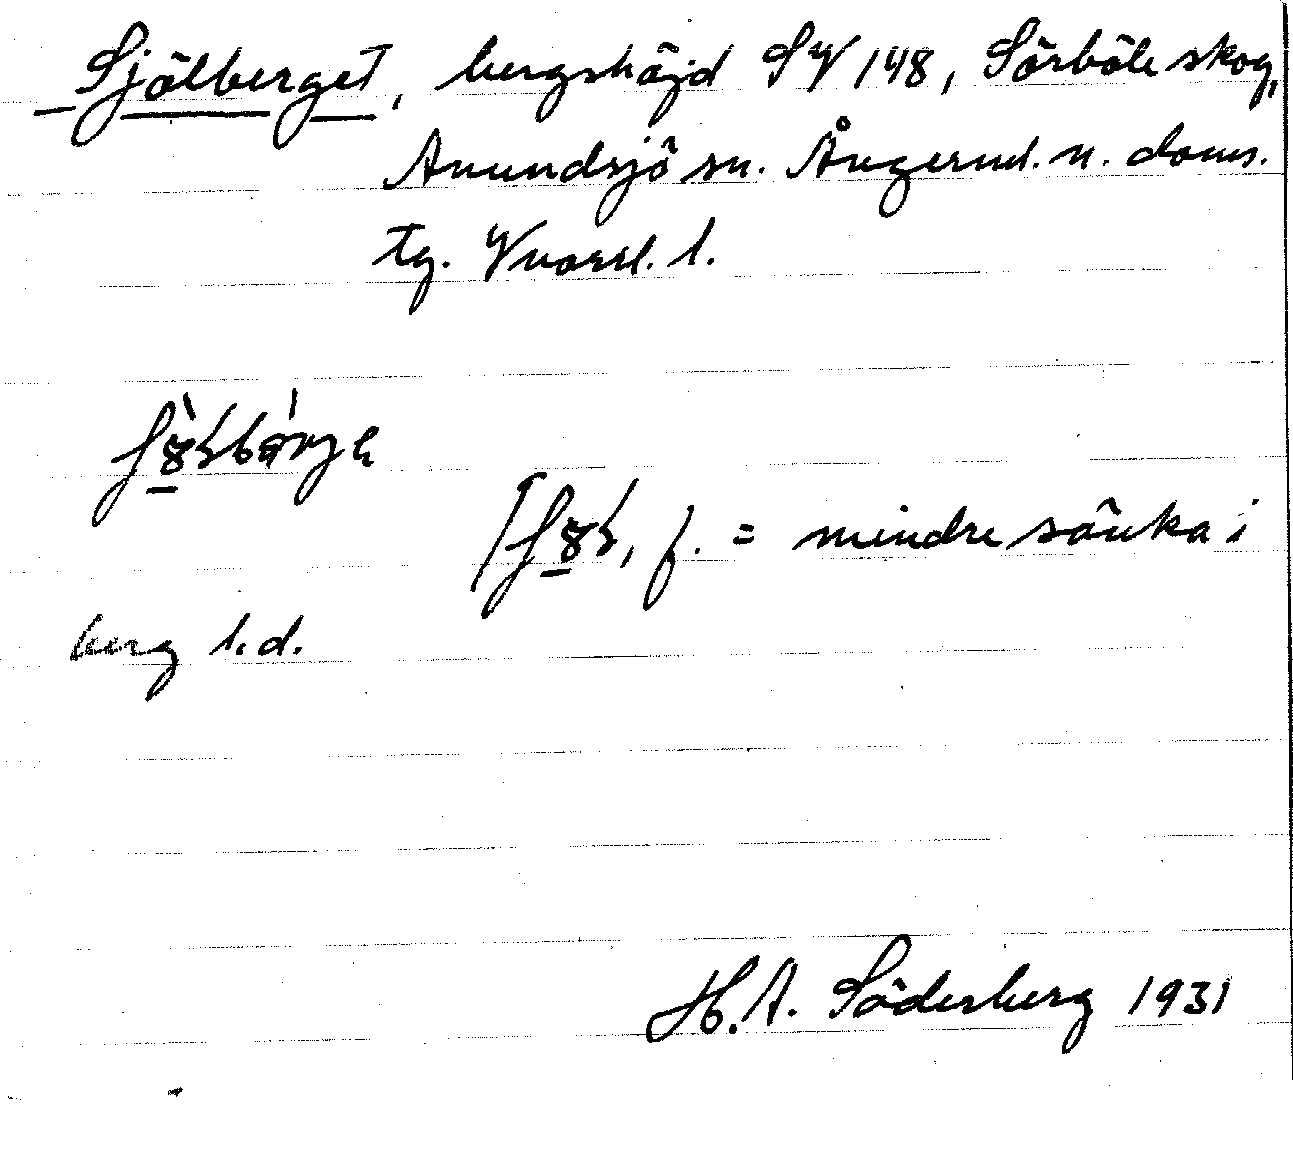 Sjölberget, bergshöjd SV 148, Sörböle skog,
Anundsjö sn. Ångerml. n. doms.
tg. Vnorrl. l.
f. = mindre sänka i
berg l.d.
H.A. Söderberg 1931